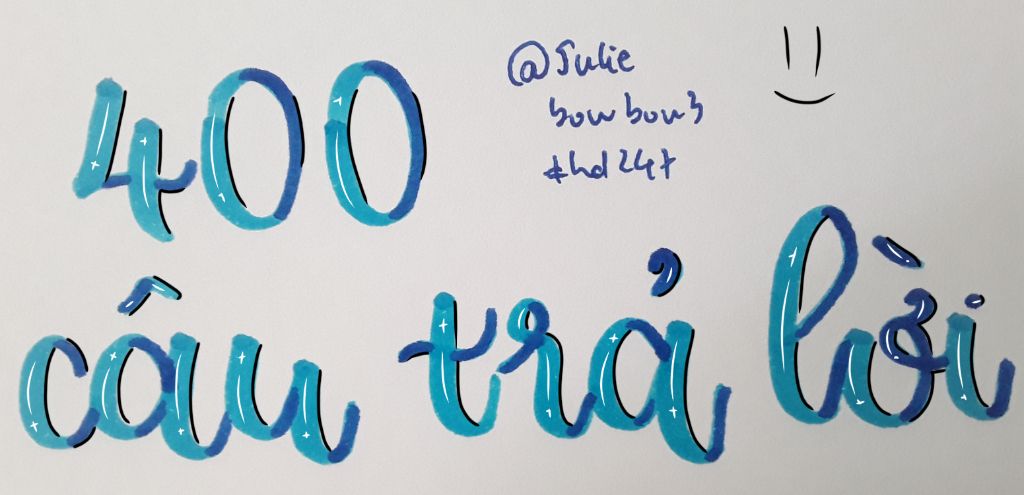 400
@Julie
bonbon3
#hd247
câu trả lời